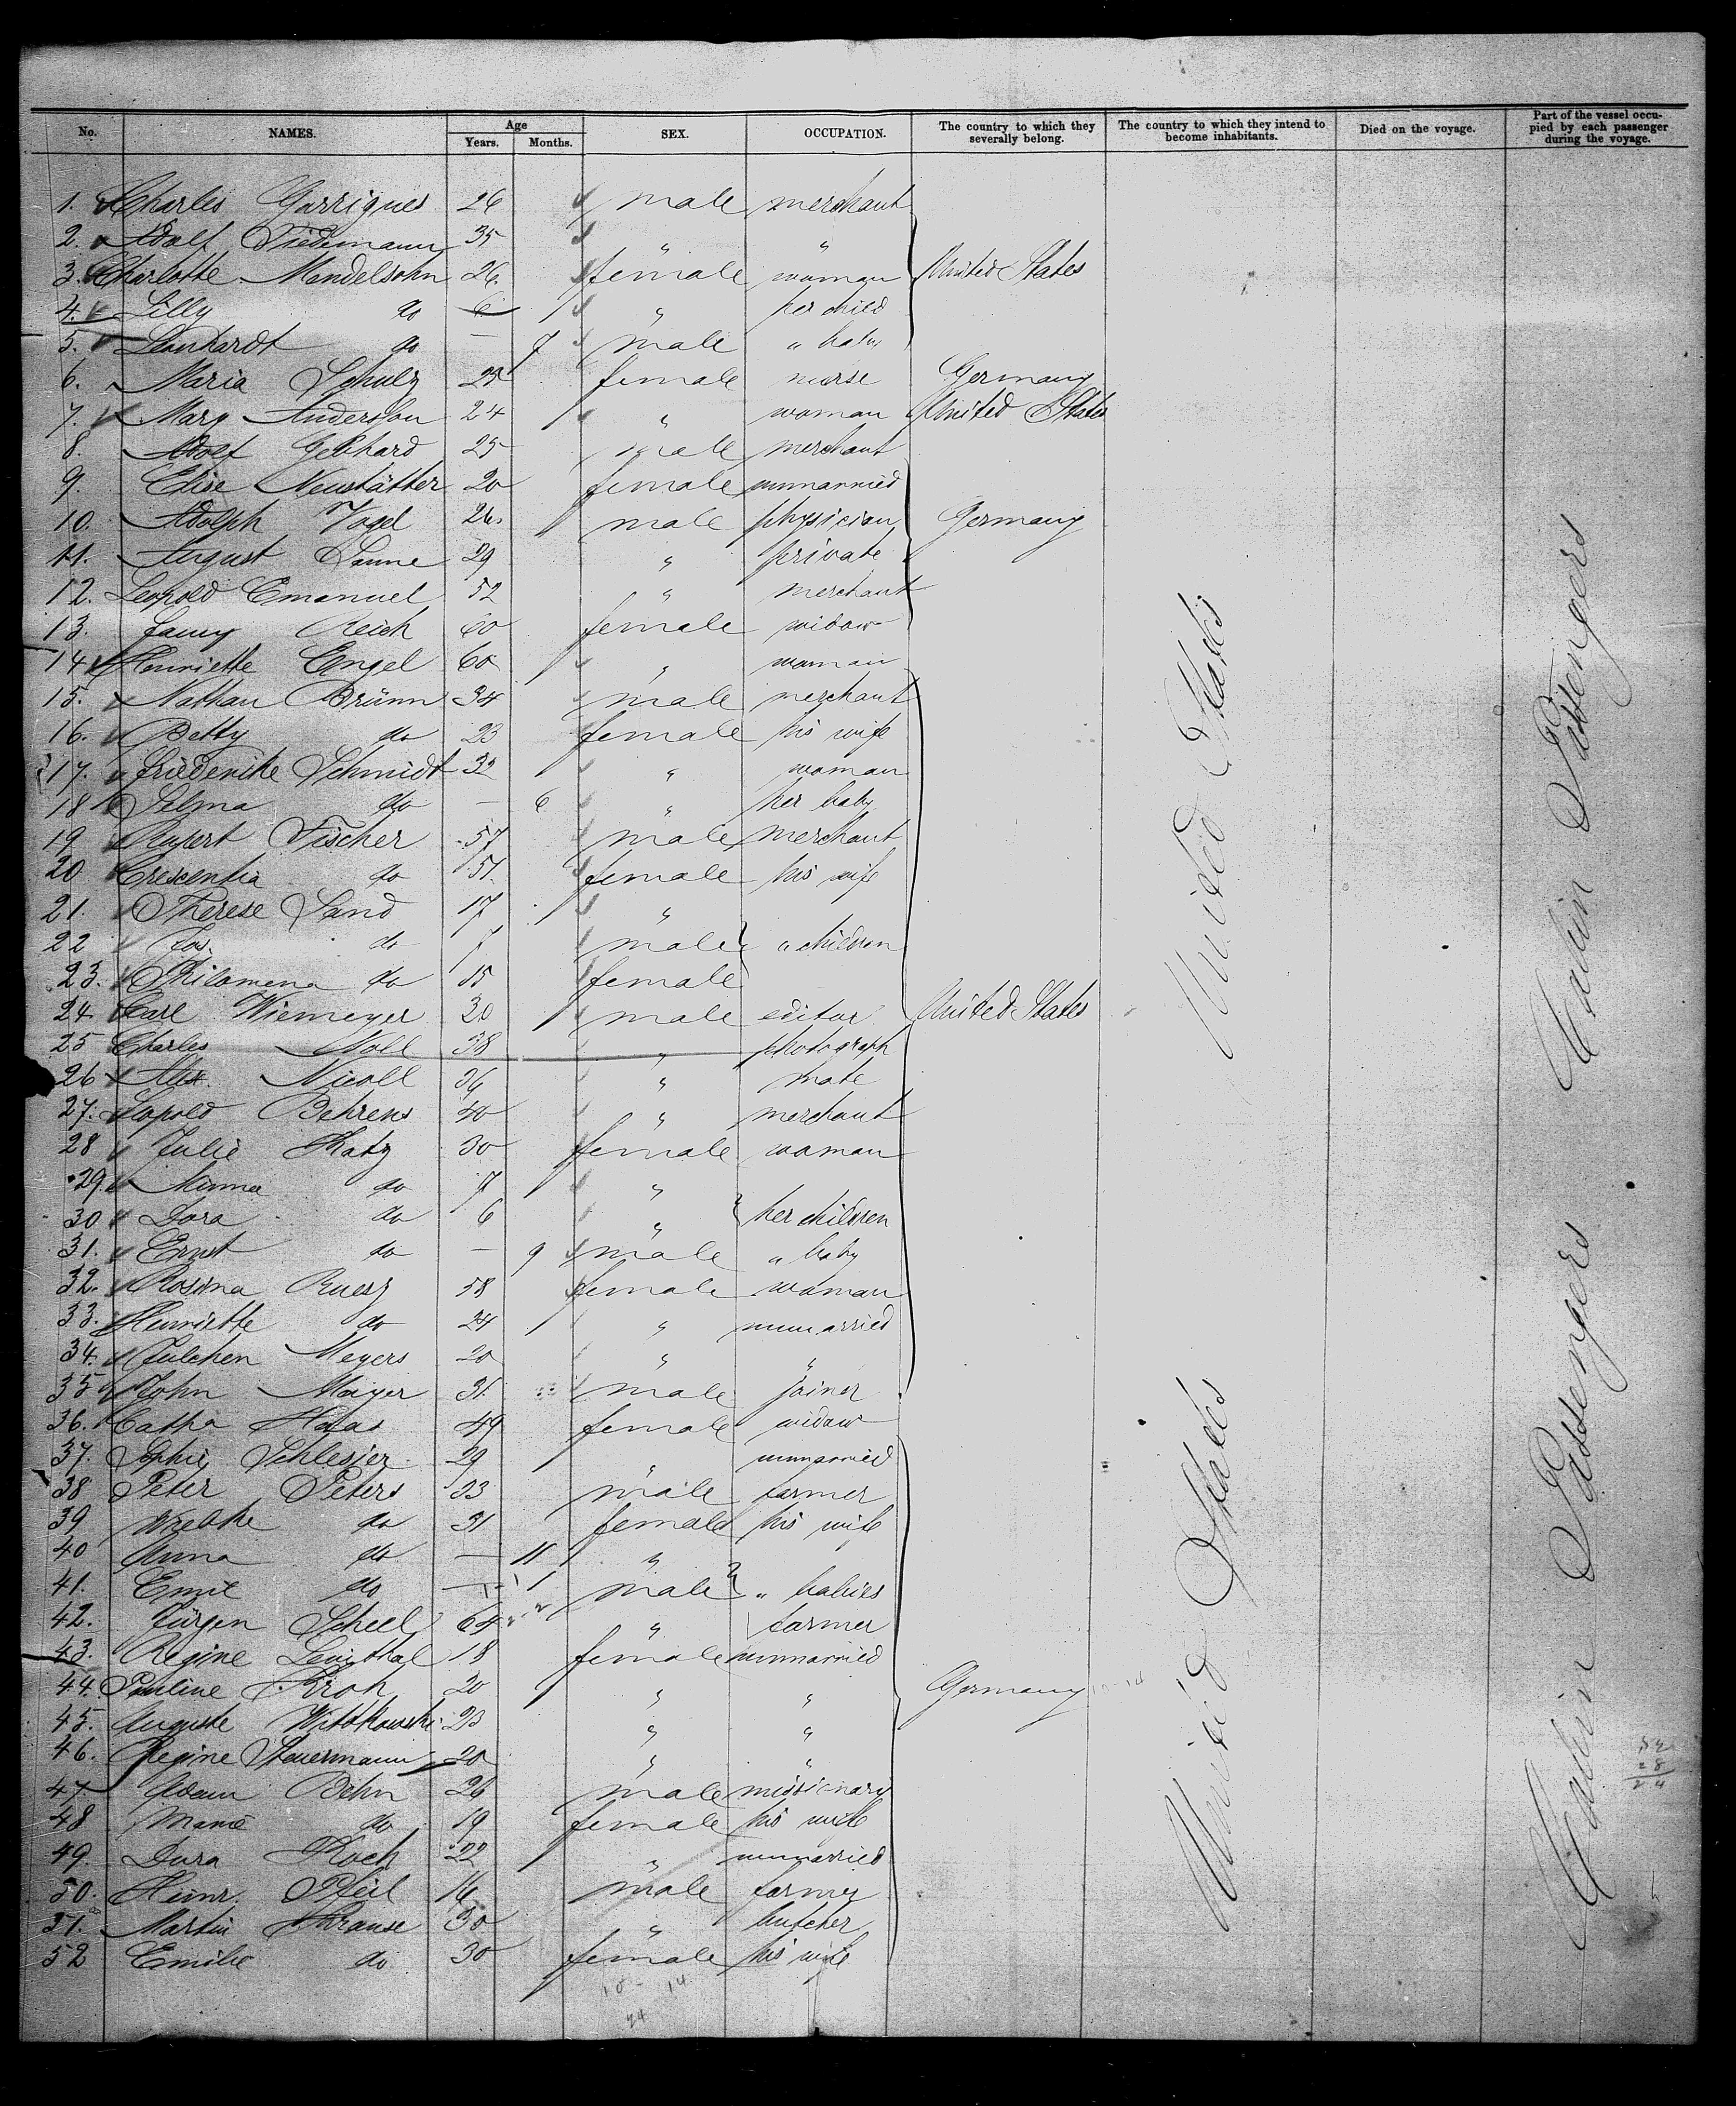 No. NAMES. Age Years. Months. SEX. OCCUPATION. The country to which they severally belong. The country to which they intend to become inhabitants. Died on the voyage. Part of the vessel occupied by each passenger during the voyage.
1. Charles Garrigues 26 male merchant
2. Adolf Tiedemann 35 " "
3. Charlotte Mendelsohn 26. female woman United States
4. Lilly do 6 " her child
5. Leonhardt do — 7 male " baby
6. Maria Schulz 25 female nurse Germany
7. Mary Anderson 24 " woman United States
8. Adolf Gebhard 25 male merchant
9. Elise Neustätter 20 female unmarried
10. Adolph Vogel 26. male physician Germany
11. August Sanne 29 " private
12. Leopold Emanuel 52 " merchant
13. Fanny Reich 60 female widow
14 Henriette Engel 60 " woman
15. Nathan Brünn 34 male merchant
16. Betty do 23 female his wife
17. Friederike Schmidt 32 " woman
18 Selma do — 6 " her baby
19 Rupert Fischer 57 male merchant
20 Crescentia do 51. female his wife
21. Therese Sand 17 "
22 Jos. do 7 male " children
23. Philomena do 15 female
24 Carl Wiemeyer 30 male editor United States
25 Charles Noll 38 " photograph
26 Alex. Nicoll 36 " mate
27. Leopold Behrens 40 " merchant
28 Julie Katz 30 female woman
29. Minna do 7 "
30 Dora do 6 " her children
31. Ernst do — 9 male " baby
32. Rosina Ruesz 58 female woman
33. Henriette do 24 " unmarried
34. Julchen Meyers 20 " "
35 John Mayer 31. male joiner
36. Catha Haas 49 female widow
37. Sophie Schlesier 29 " unmarried
38 Peter Peters 33 male farmer
39 Wiebke do 31 female his wife
40 Anna do — 11 "
41. Emil do — 1 male " babies
42. Jürgen Scheel 64 " farmer
43. Regine Levithal 18 female unmarried
44. Pauline Kroh 20 " " Germany
45. Auguste Witkowski 23 " "
46. Regine Steuermann 20 " "
47 Adam Behn 26 male missionary
48 Marie do 19 female his wife
49. Dora Koch 22 " unmarried
50. Heinr. Pfeil 16 male farmer
51. Martin Krause 30 " butcher
52 Emilie do 30 female his wife
United States
United States
Cabin Passengers
Cabin Passengers
10-14
52
28
24
10 - 14
24